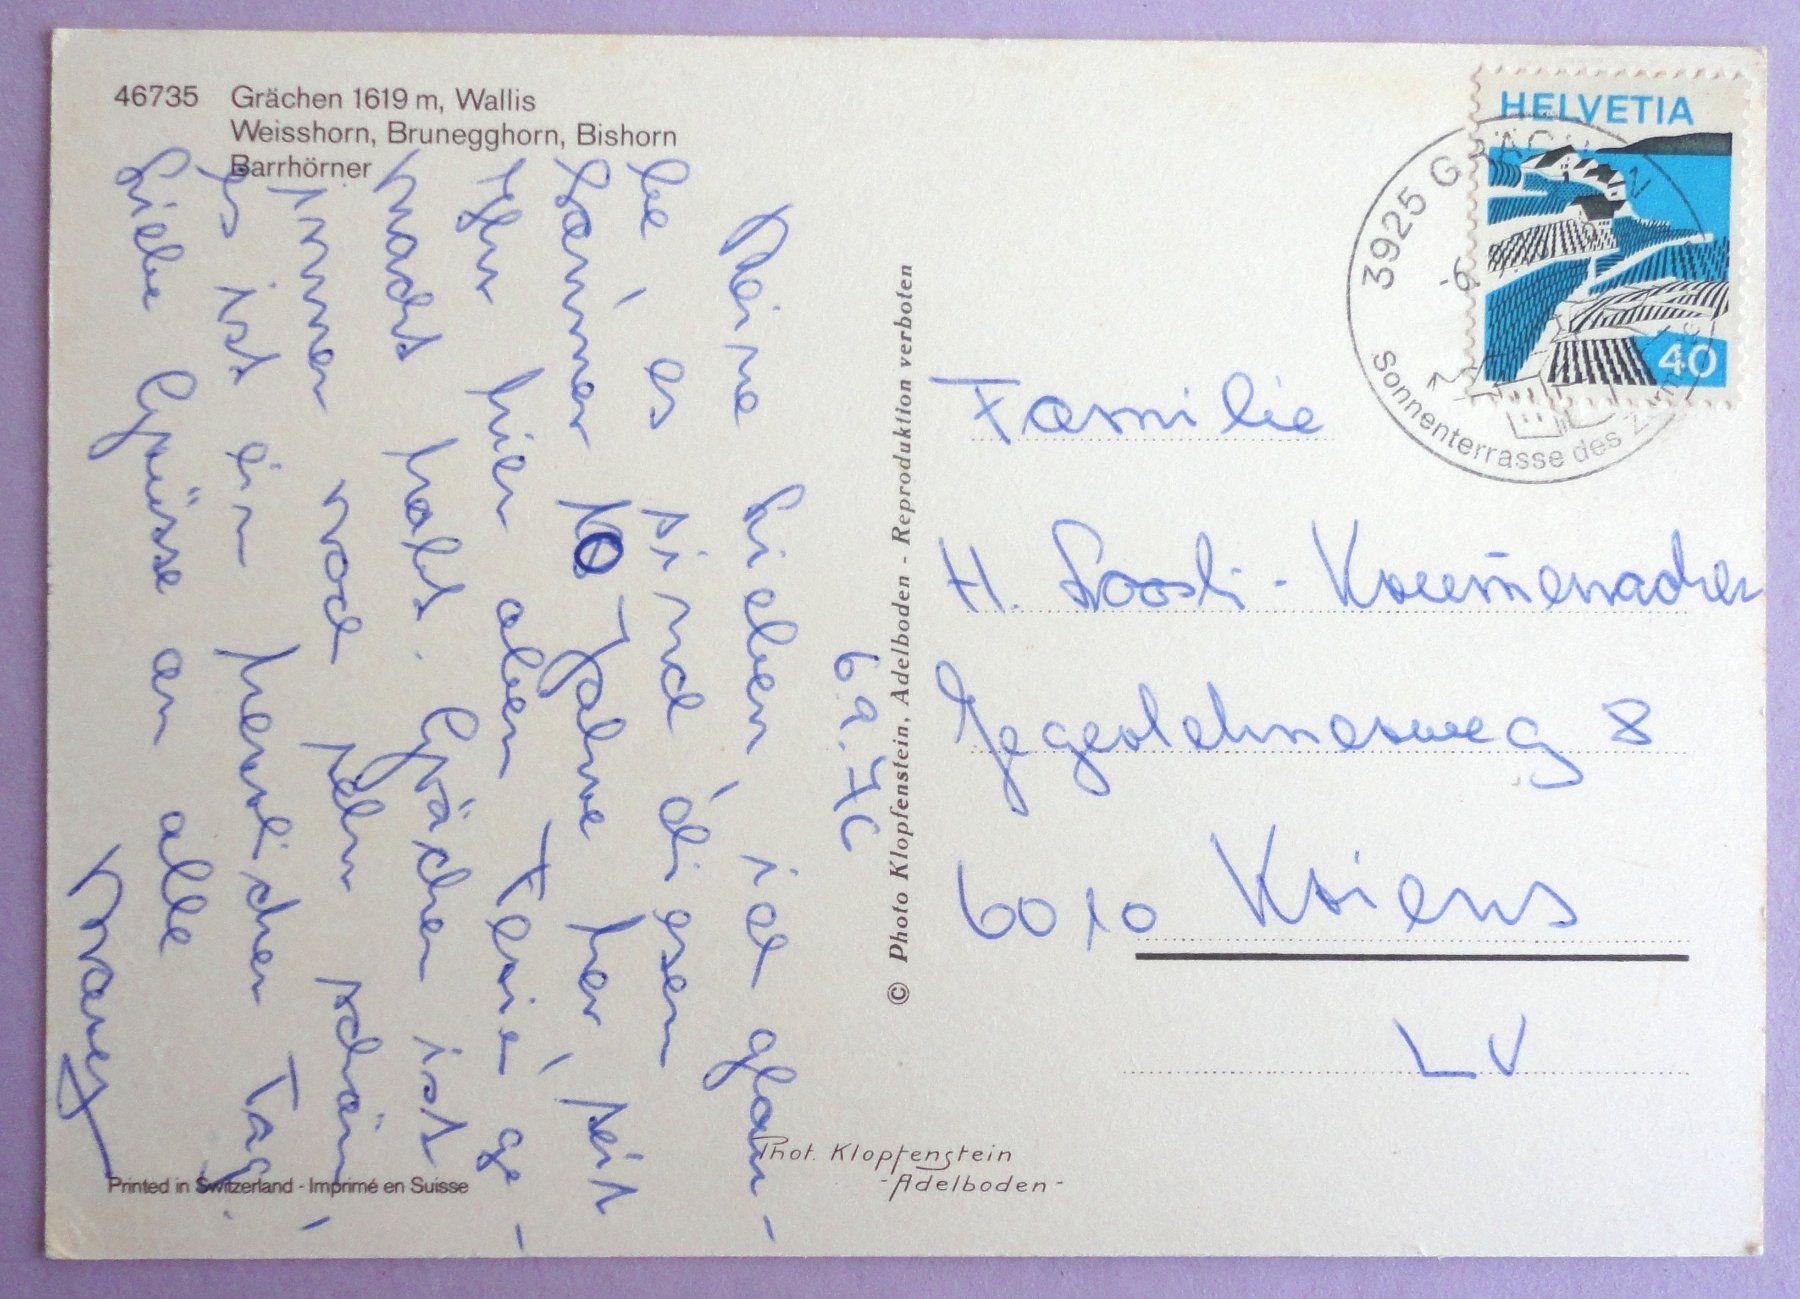 46735 Grächen 1619 m, Wallis
Weisshorn, Brunegghorn, Bishorn
Barrhörner
6.9.76
Meine Lieben, ich glau-
be, es sind diesen
Sommer 10 Jahre her, seit
Ihr hier oben Ferien ge-
macht habt. Grächen ist
immer noch sehr schön,
es ist ein herrlicher Tag.
Liebe Grüsse an alle
© Photo Klopfenstein, Adelboden - Reproduktion verboten
HELVETIA
40
3925 GRÄCHEN
Sonnenterrasse des
Familie
H. Loosli -
8
6010 Kriens
LU
Phot. Klopfenstein
- Adelboden -
Printed in Switzerland - Imprimé en Suisse